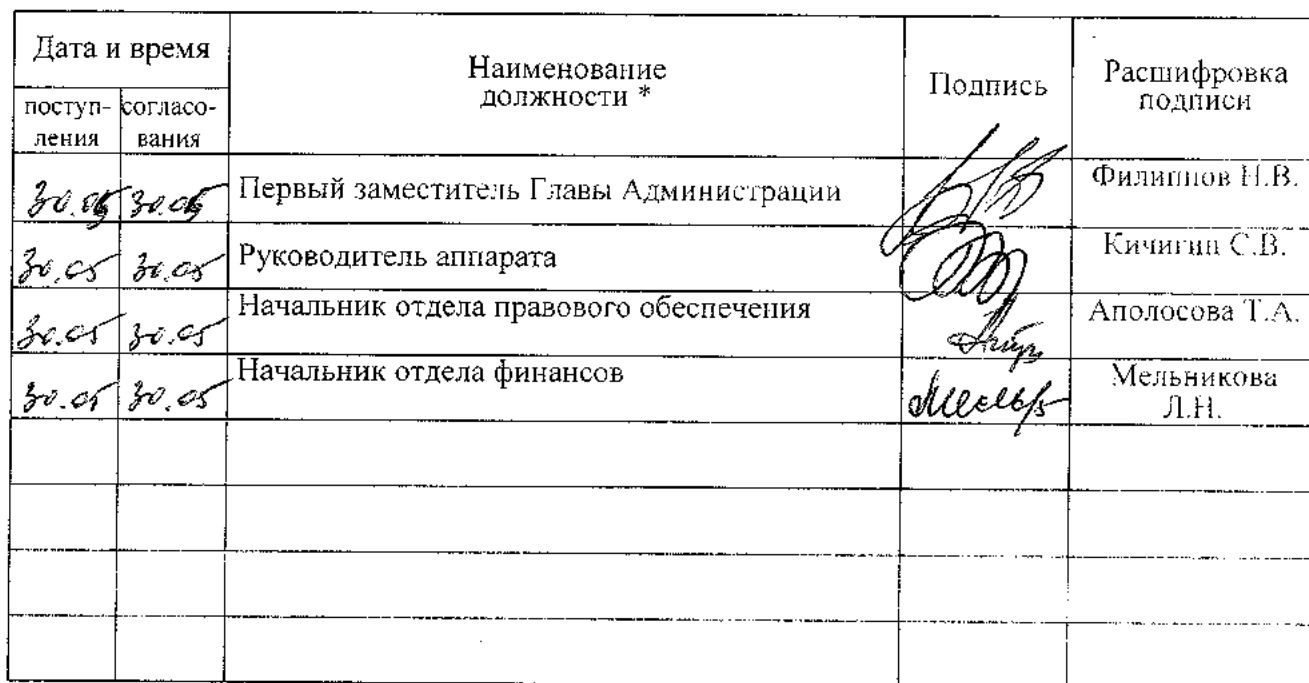 Дата и время
Наименование
должности *
Подпись
Расшифровка
подписи
поступ-
ления
согласо-
вания
30.05 30.05 Первый заместитель Главы Администрации Филиппов Н.В.
30.05 30.05 Руководитель аппарата Кичигин С.В.
30.05 30.05 Начальник отдела правового обеспечения Аполосова Т.А.
30.05 30.05 Начальник отдела финансов Мельникова
Л.Н.